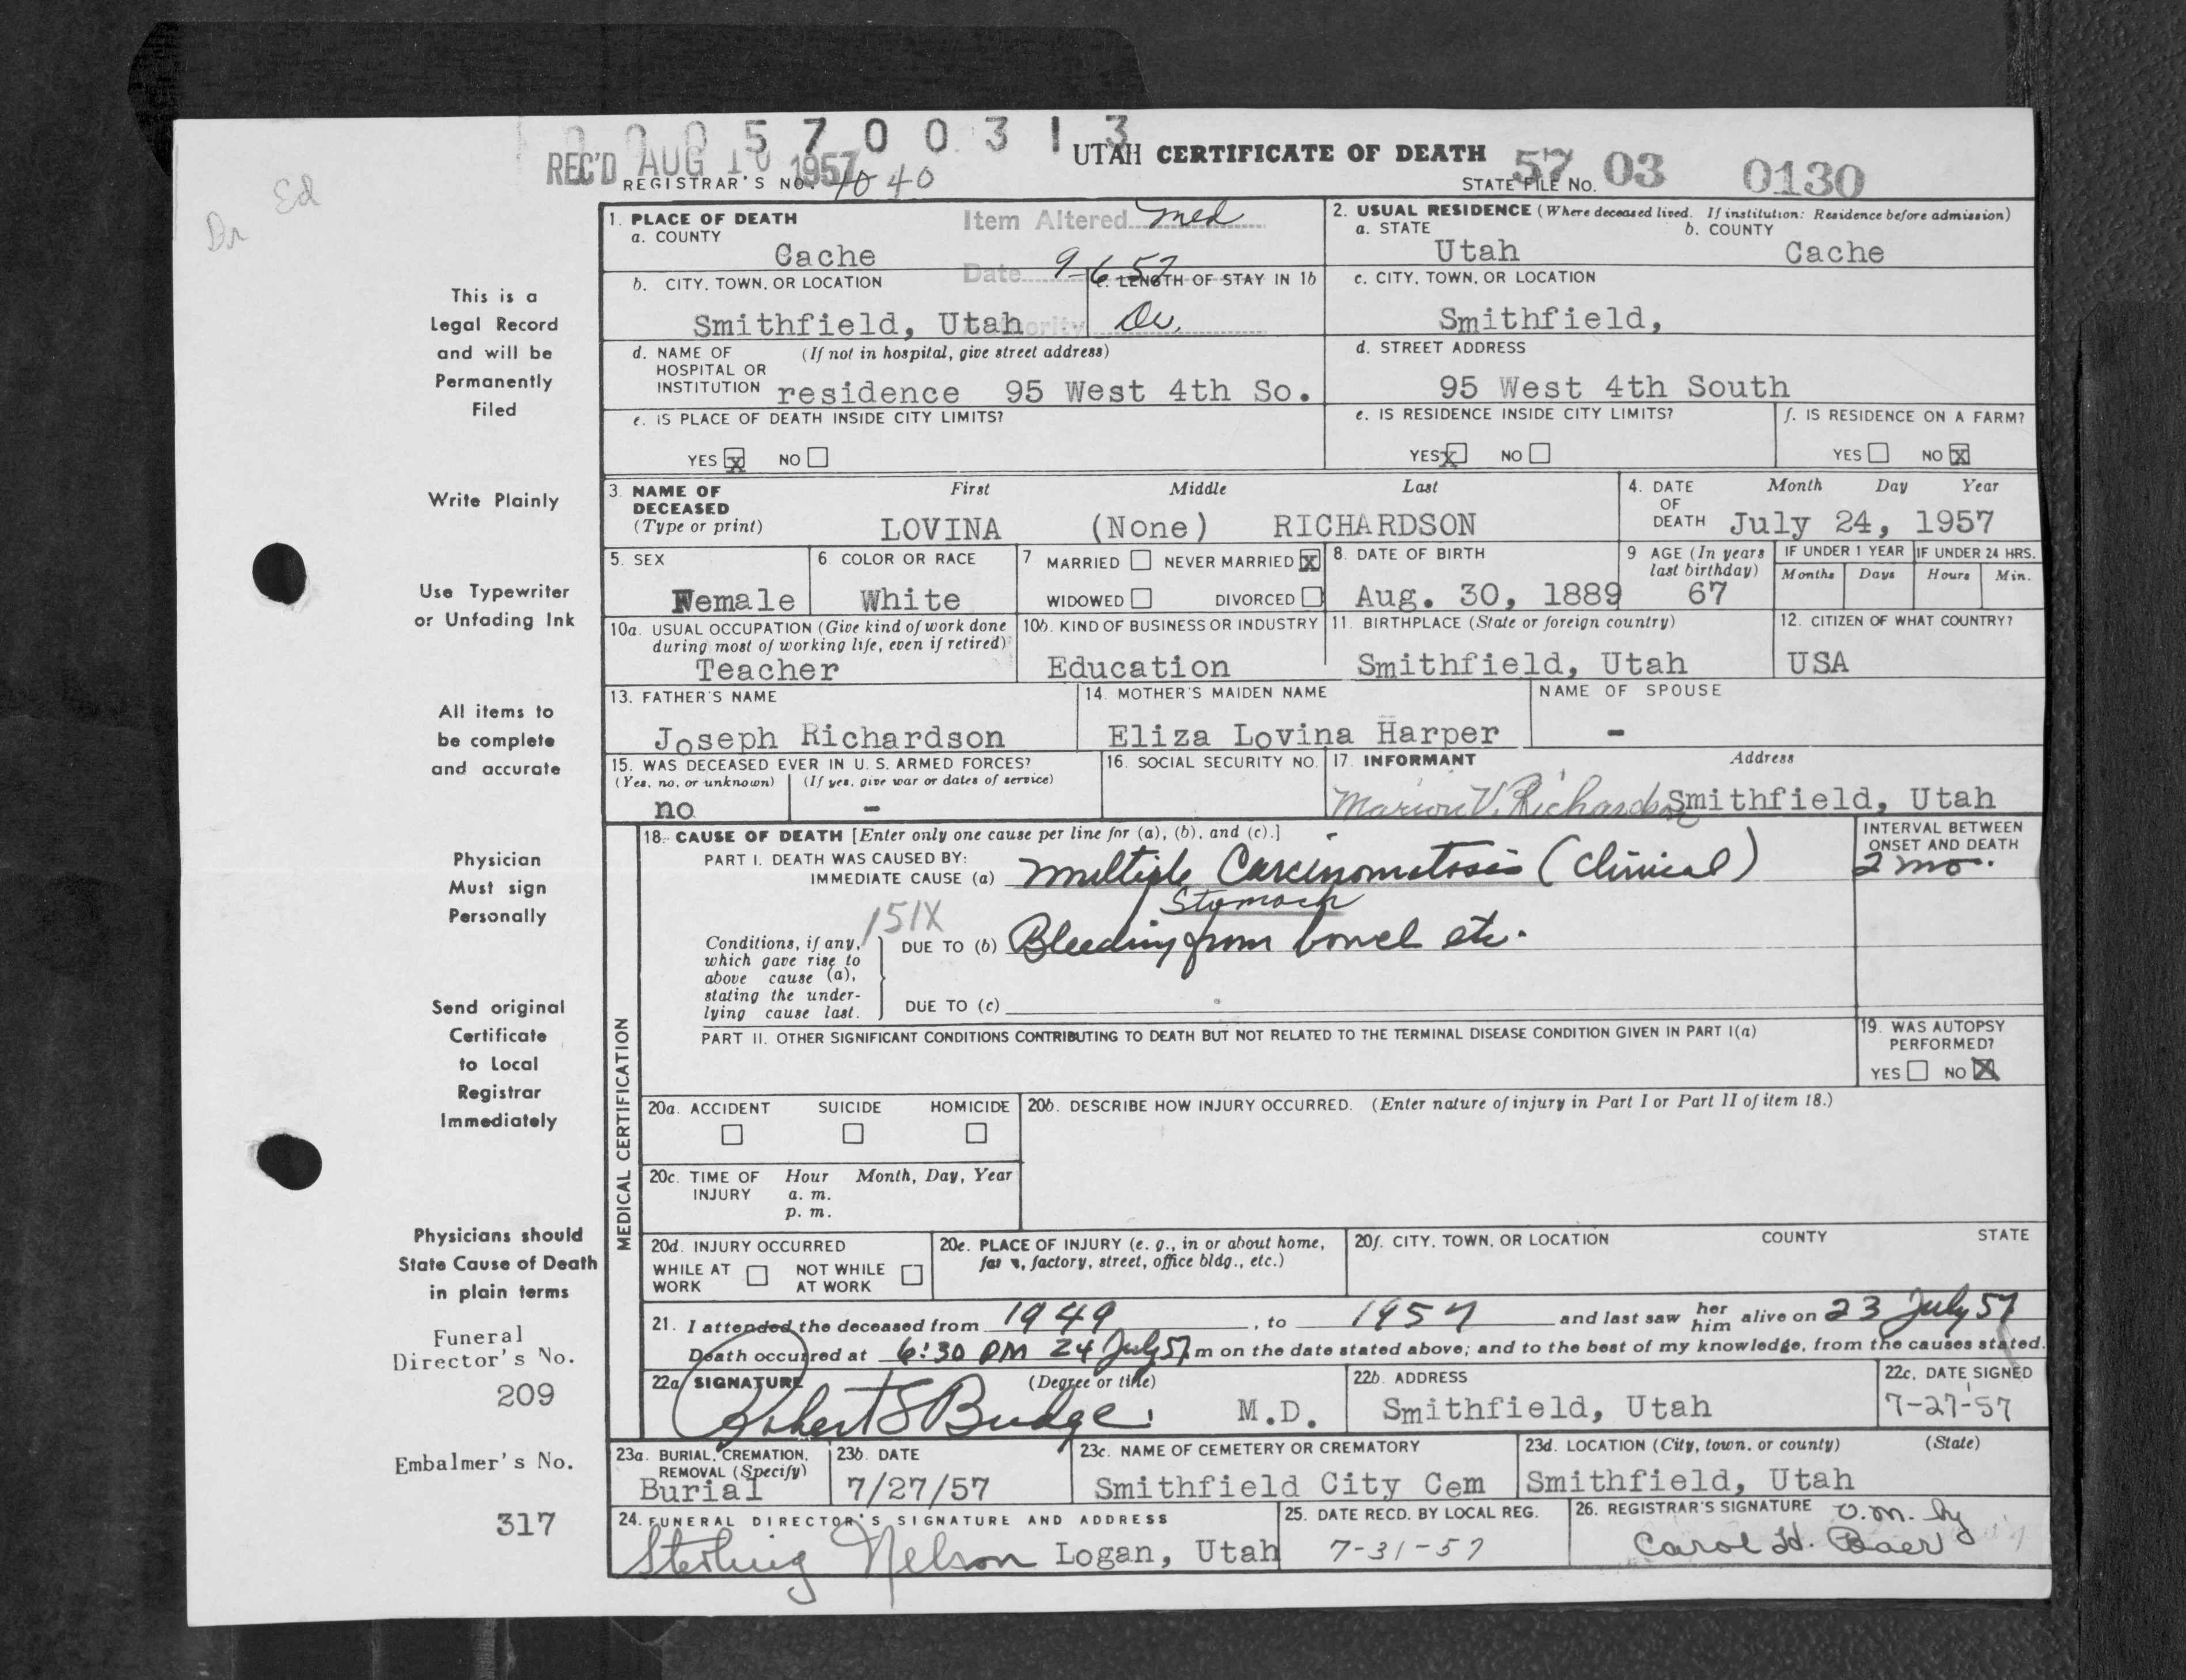 0 0 0 5 7 0 0 3 1 3
REC'D AUG 10 1957
UTAH CERTIFICATE OF DEATH
REGISTRAR'S NO. 40 40
STATE FILE NO. 57 03 0130
Dr Ed
1. PLACE OF DEATH
a. COUNTY
Cache
Item Altered med
Date 9-6-57
2. USUAL RESIDENCE (Where deceased lived. If institution: Residence before admission)
a. STATE
Utah
b. COUNTY
Cache
b. CITY, TOWN, OR LOCATION
Smithfield, Utah
c. LENGTH OF STAY IN 1b
c. CITY, TOWN, OR LOCATION
Smithfield,
d. NAME OF HOSPITAL OR INSTITUTION (If not in hospital, give street address)
residence 95 West 4th So.
d. STREET ADDRESS
95 West 4th South
e. IS PLACE OF DEATH INSIDE CITY LIMITS?
YES X NO
e. IS RESIDENCE INSIDE CITY LIMITS?
YES X NO
f. IS RESIDENCE ON A FARM?
YES NO X
3. NAME OF DECEASED (Type or print)
First Middle Last
LOVINA (None) RICHARDSON
4. DATE OF DEATH Month Day Year
July 24, 1957
5. SEX
Female
6 COLOR OR RACE
White
7 MARRIED NEVER MARRIED X
WIDOWED DIVORCED
8. DATE OF BIRTH
Aug. 30, 1889
9 AGE (In years last birthday)
67
IF UNDER 1 YEAR
Months Days
IF UNDER 24 HRS.
Hours Min.
10a. USUAL OCCUPATION (Give kind of work done during most of working life, even if retired)
Teacher
10b. KIND OF BUSINESS OR INDUSTRY
Education
11. BIRTHPLACE (State or foreign country)
Smithfield, Utah
12. CITIZEN OF WHAT COUNTRY?
USA
13. FATHER'S NAME
Joseph Richardson
14. MOTHER'S MAIDEN NAME
Eliza Lovina Harper
NAME OF SPOUSE
-
15. WAS DECEASED EVER IN U. S. ARMED FORCES?
(Yes, no, or unknown) (If yes, give war or dates of service)
no -
16. SOCIAL SECURITY NO.
17. INFORMANT Address
Marion V. Richardson Smithfield, Utah
MEDICAL CERTIFICATION
18. CAUSE OF DEATH [Enter only one cause per line for (a), (b), and (c).]
PART I. DEATH WAS CAUSED BY:
IMMEDIATE CAUSE (a) Multiple Carcinomatosis (Clinical)
INTERVAL BETWEEN ONSET AND DEATH
2 mo.
Stomach
151X
Conditions, if any, which gave rise to above cause (a), stating the underlying cause last.
DUE TO (b) Bleeding from bowel etc.
DUE TO (c)
PART II. OTHER SIGNIFICANT CONDITIONS CONTRIBUTING TO DEATH BUT NOT RELATED TO THE TERMINAL DISEASE CONDITION GIVEN IN PART I(a)
19. WAS AUTOPSY PERFORMED?
YES NO X
20a. ACCIDENT SUICIDE HOMICIDE
20b. DESCRIBE HOW INJURY OCCURRED. (Enter nature of injury in Part I or Part II of item 18.)
20c. TIME OF INJURY Hour Month, Day, Year
a. m.
p. m.
20d. INJURY OCCURRED
WHILE AT WORK NOT WHILE AT WORK
20e. PLACE OF INJURY (e. g., in or about home, farm, factory, street, office bldg., etc.)
20f. CITY, TOWN, OR LOCATION COUNTY STATE
21. I attended the deceased from 1949, to 1957 and last saw her him alive on 23 July 57
Death occurred at 6:30 PM 24 July 57 m on the date stated above; and to the best of my knowledge, from the causes stated.
22a. SIGNATURE (Degree or title)
Robert S Budge M.D.
22b. ADDRESS
Smithfield, Utah
22c. DATE SIGNED
7-27-57
23a. BURIAL, CREMATION, REMOVAL (Specify)
Burial
23b. DATE
7/27/57
23c. NAME OF CEMETERY OR CREMATORY
Smithfield City Cem
23d. LOCATION (City, town, or county) (State)
Smithfield, Utah
24. FUNERAL DIRECTOR'S SIGNATURE AND ADDRESS
Sterling Nelson Logan, Utah
25. DATE RECD. BY LOCAL REG.
7-31-57
26. REGISTRAR'S SIGNATURE
O.M. by
Carol H. Baer
This is a
Legal Record
and will be
Permanently
Filed
Write Plainly
Use Typewriter
or Unfading Ink
All items to
be complete
and accurate
Physician
Must sign
Personally
Send original
Certificate
to Local
Registrar
Immediately
Physicians should
State Cause of Death
in plain terms
Funeral
Director's No.
209
Embalmer's No.
317